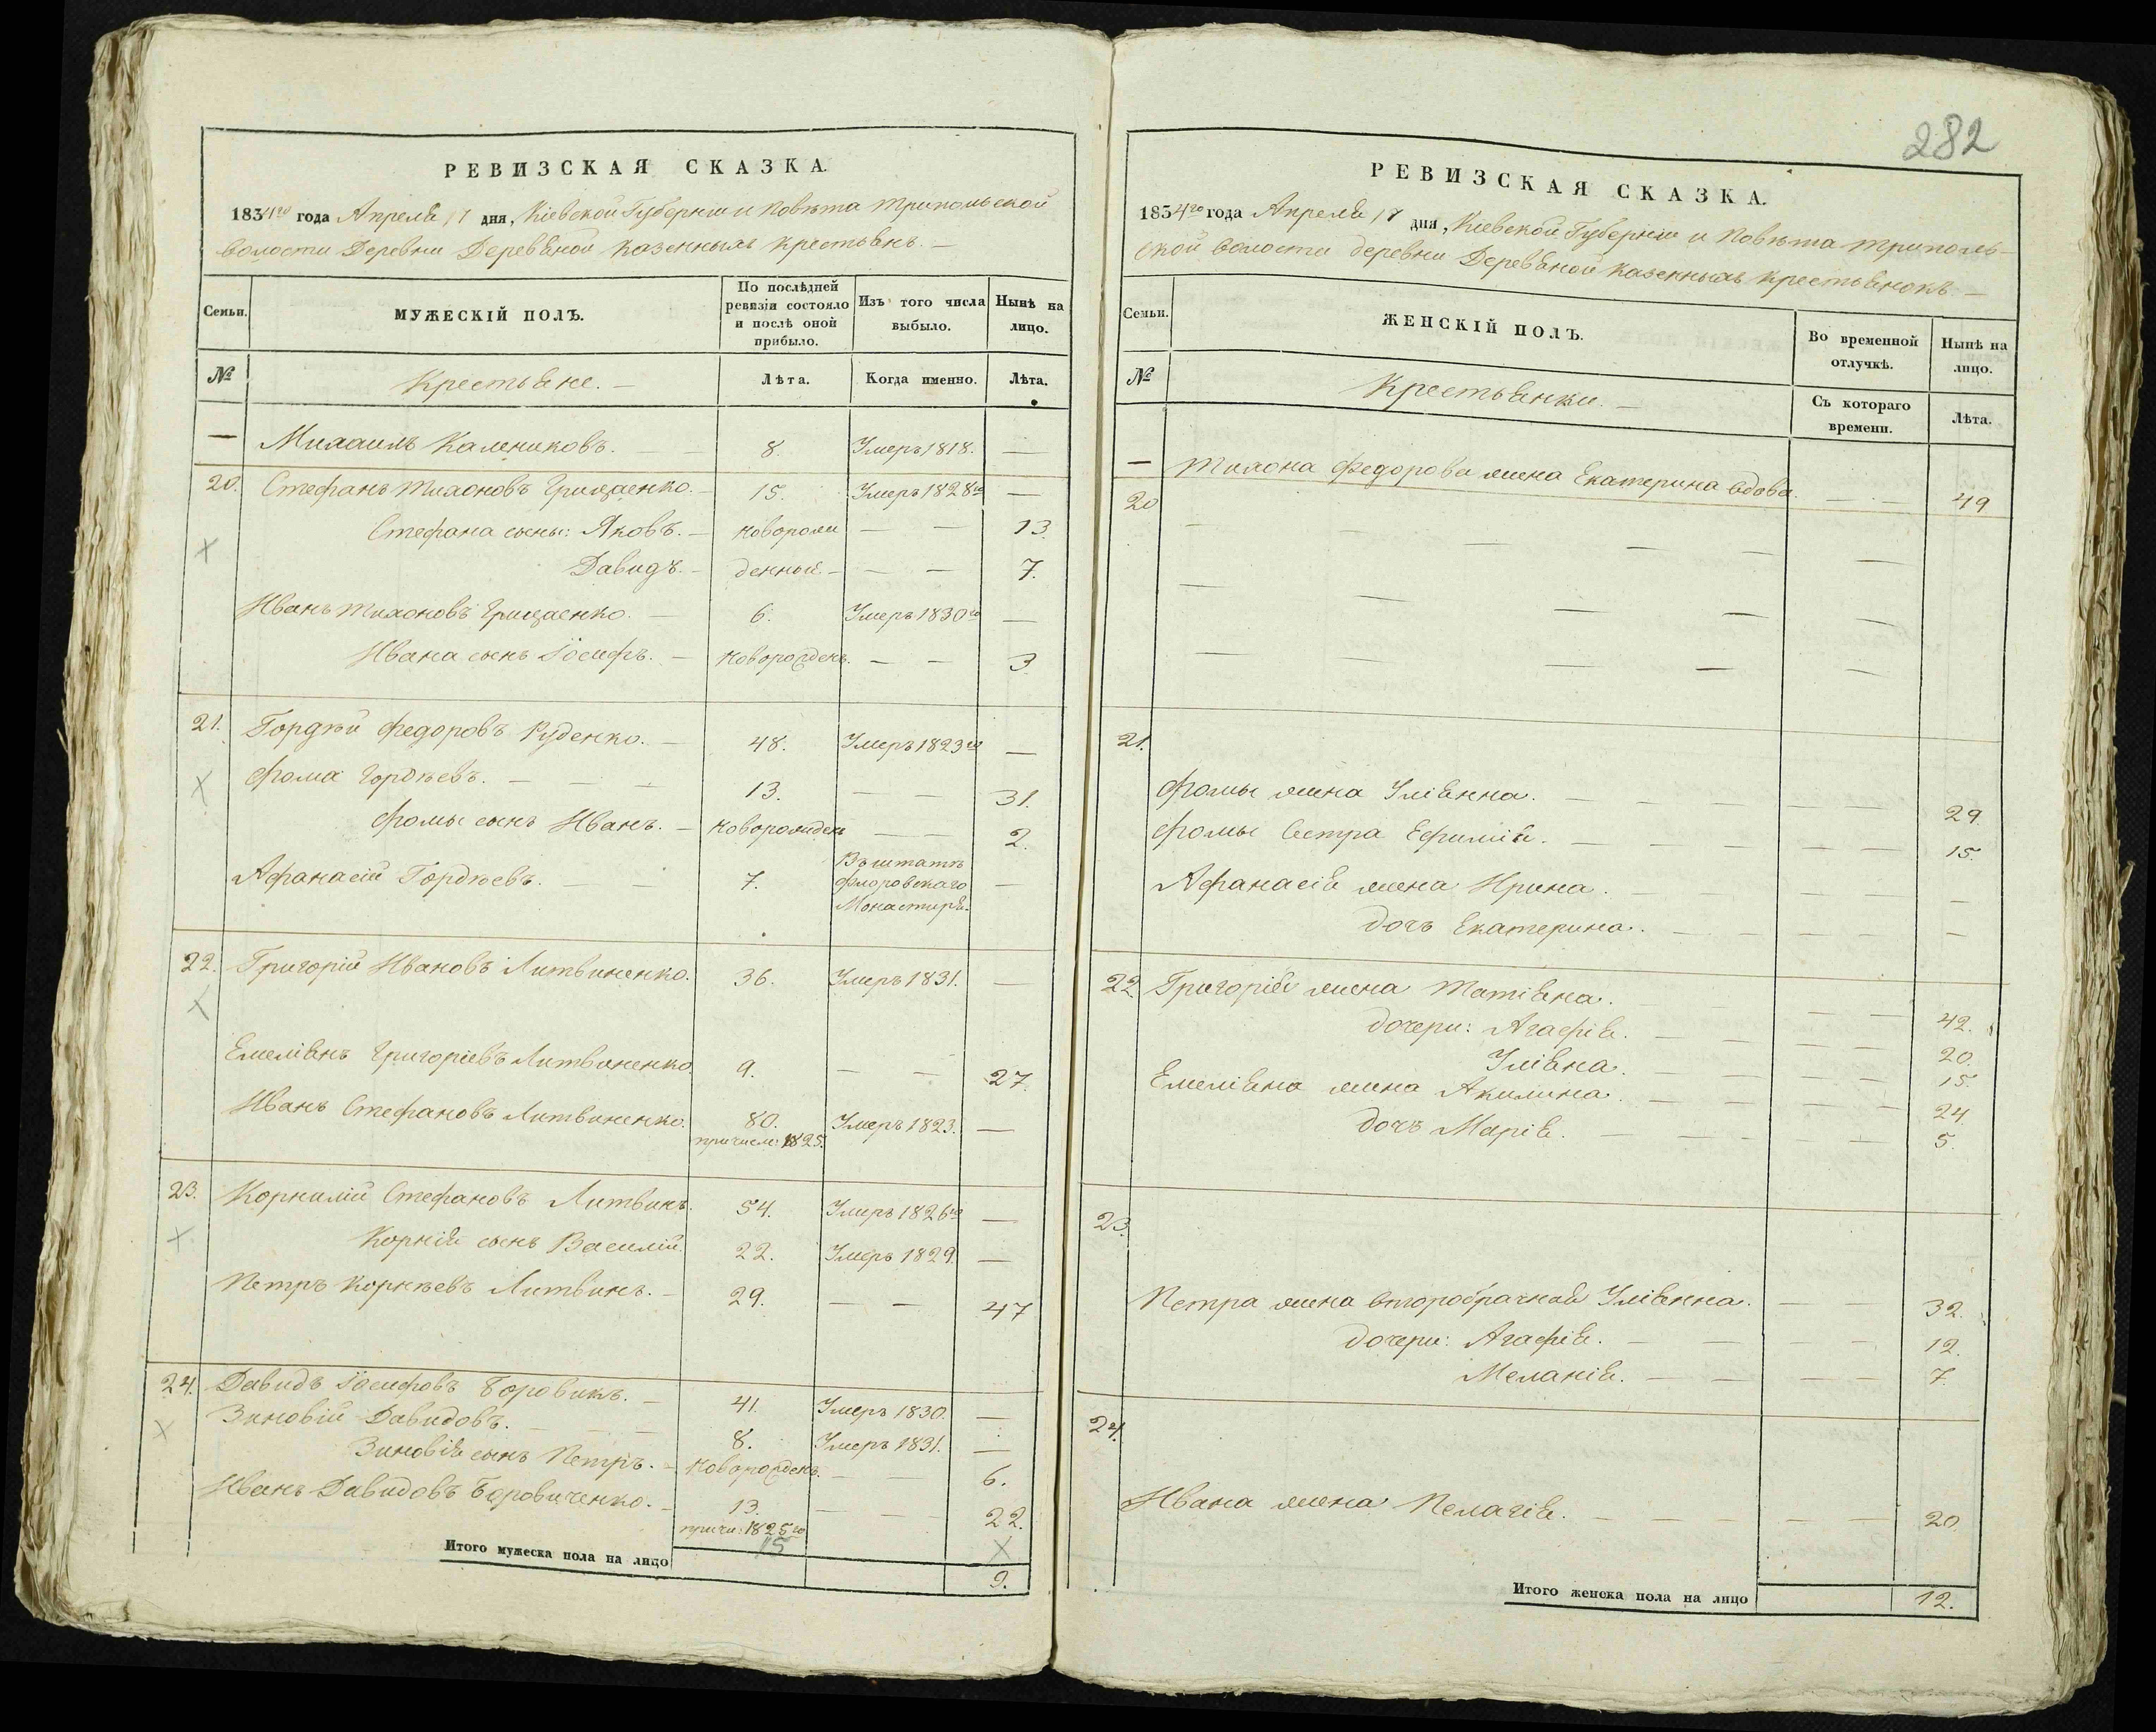 РЕВИЗСКАЯ СКАЗКА.
1834го года Апреля 17 дня, Кіевской Губерніи и Повѣта Трипольской
волости Деревни Деревяной казенныхъ крестьянъ. —
Семьи.
МУЖЕСКІЙ ПОЛЪ.
По послѣдней ревизіи состояло и послѣ оной прибыло.
Изъ того числа выбыло.
Нынѣ на лицо.
№
Крестьяне. —
Лѣта.
Когда именно.
Лѣта.
— Михаилъ Калениковъ. 8. Умеръ 1818. —
20. Стефанъ Тихоновъ Грицаенко. — 15. Умеръ 1828го —
Стефана сыны: Яковъ. — Новорож — — 13.
Давидъ. — денной. — — — 7.
Иванъ Тихоновъ Грицаенко. — 6. Умеръ 1830го —
Ивана сынъ Іосифъ. — Новорожденъ. — — 3
21. Гордѣй Федоровъ Руденко. — 48. Умеръ 1823го —
Фома Гордѣевъ. — — — 13. — — 31.
Фомы сынъ Иванъ. — Новорожден — — 2.
Афанасій Гордѣевъ. — — 7. Въ штатѣ Флоровскаго Монастыря. —
22. Григорій Ивановъ Литвиненко. 36. Умеръ 1831. —
Емеліянъ Григоріевъ Литвиненко 9. — — 27.
Иванъ Стефановъ Литвиненко. 80. Умеръ 1823. —
причисл: 1825.
23. Корнилій Стефановъ Литвинъ. 54. Умеръ 1826го —
Корнія сынъ Василій. 22. Умеръ 1829. —
Петръ Корнѣевъ Литвинъ. — 29. — — 47
24. Давидъ Іосифовъ Боровикъ. — 41. Умеръ 1830. —
Зиновій Давидовъ. — — — 8. Умеръ 1831. —
Зиновія сынъ Петръ. — Новорожденъ. — — 6.
Иванъ Давидовъ Боровиченко. — 13. — — 22.
причи: 1825го
15
Итого мужеска пола на лицо 9.
282
РЕВИЗСКАЯ СКАЗКА.
1834го года Апреля 17 дня, Кіевской Губерніи и Повѣта Триполь-
ской волости деревни Деревяной казенныхъ крестьянокъ —
Семьи.
ЖЕНСКІЙ ПОЛЪ.
Во временной отлучкѣ.
Нынѣ на лицо.
№
Крестьянки. —
Съ котораго времени.
Лѣта.
— Тихона Федорова жена Екатерина вдова. — — 49
20
21.
Фомы жена Уліянна. — — — — 29.
Фомы сестра Ефимія. — — — — — 15.
Афанасія жена Ирина. — — — — —
дочь Екатерина. — — — — —
22. Григорія жена Татіяна. — — — — 42.
дочери: Агафія. — — — — 20.
Уліяна. — — — — 15.
Емеліяна жена Акилина. — — — — — 24.
дочь Марія. — — — — — 5.
23.
Петра жена второбрачная Уліянна. — — 32.
дочери: Агафія. — — — 12.
Меланія. — — — — 7.
24.
Ивана жена Пелагія. — — — — — 20.
Итого женска пола на лицо 12.